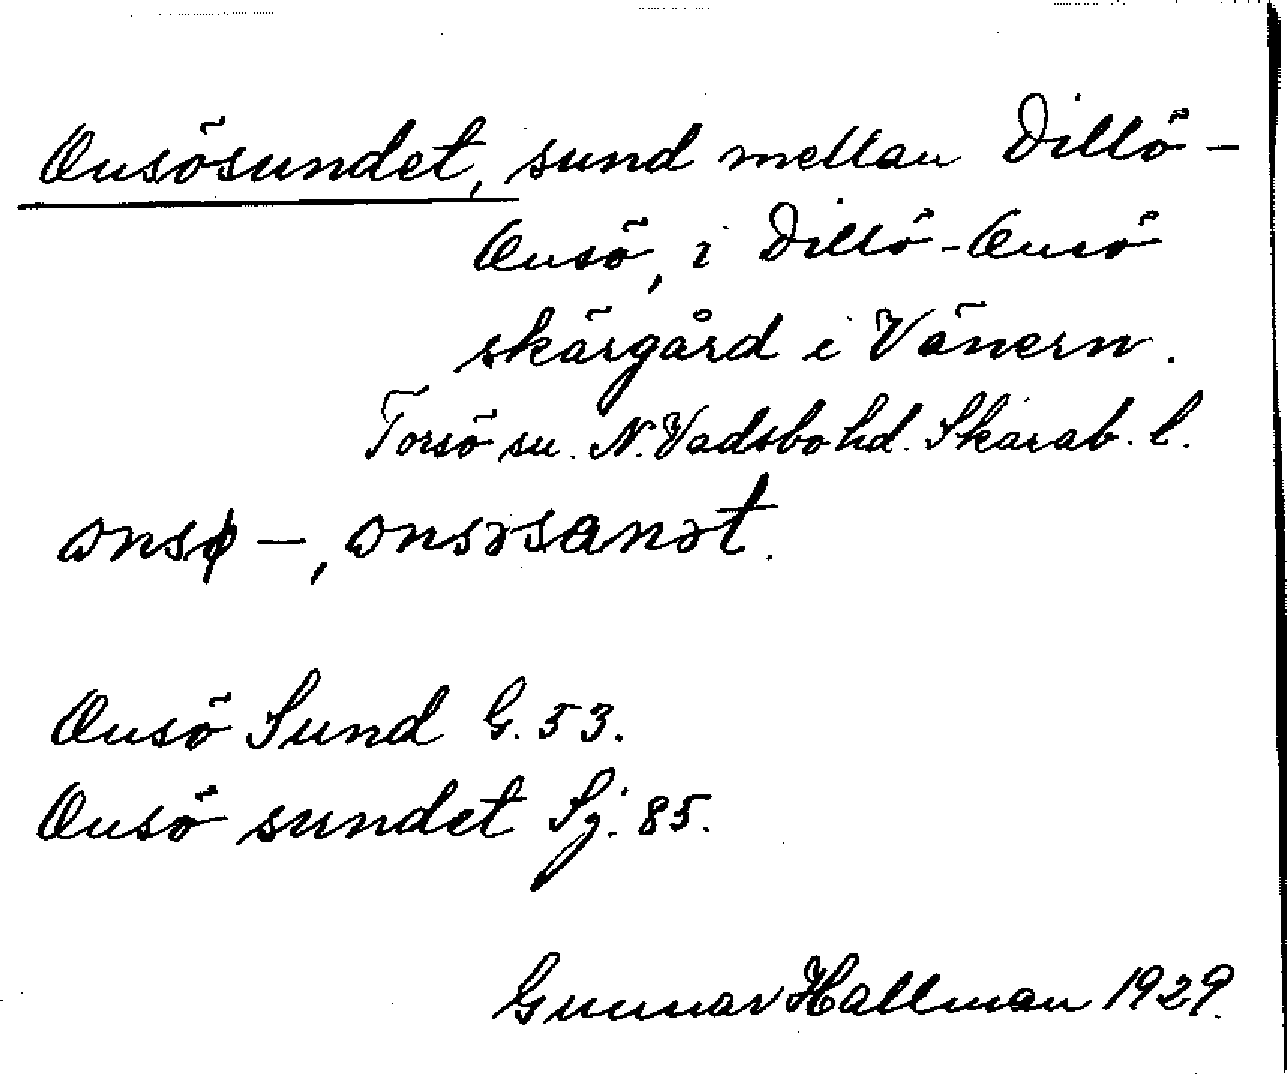 Onsösundet, sund mellan Dillö -
Onsö, i Dillö-Onsö
skärgård i Vänern.
Torsö sn. N. Vadsbo hd. Skarab. l.
ɷnsø –, ɷnsəsanət.
Onsö Sund G. 53.
Onsö sundet Sj. 85.
Gunnar Hallman 1929.